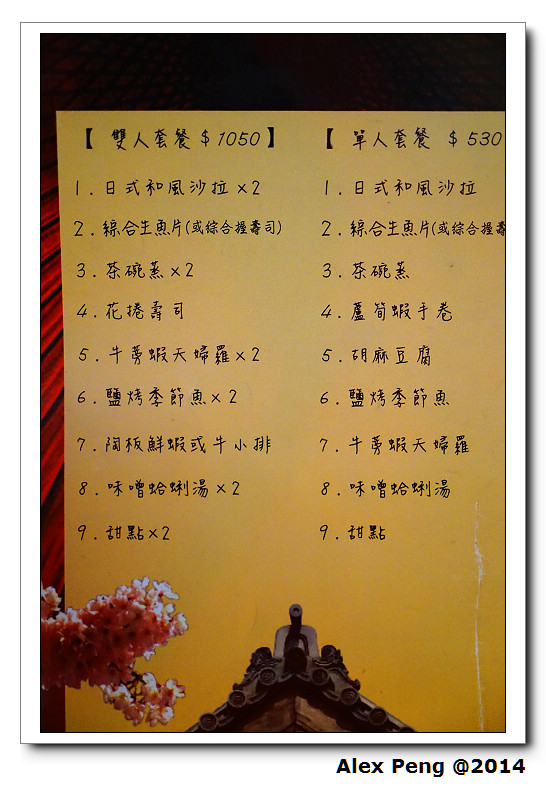 【 雙人套餐 $ 1050】
1. 日式和風沙拉 ×2
2. 綜合生魚片(或綜合握壽司)
3. 茶碗蒸 ×2
4. 花捲壽司
5. 牛蒡蝦天婦羅 ×2
6. 鹽烤季節魚 × 2
7. 陶板鮮蝦或牛小排
8. 味噌蛤蜊湯 ×2
9. 甜點 ×2
【 單人套餐 $ 530
1. 日式和風沙拉
2. 綜合生魚片(或綜合握壽
3. 茶碗蒸
4. 蘆筍蝦手卷
5. 胡麻豆腐
6. 鹽烤季節魚
7. 牛蒡蝦天婦羅
8. 味噌蛤蜊湯
9. 甜點
Alex Peng @2014